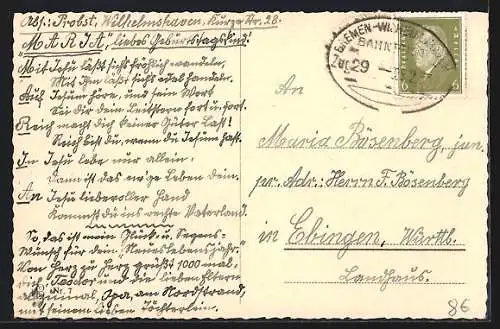 Abs.: Probst, Wilhelmshaven, Kurze Str. 28.
"MARIA", liebes Geburtstagskind!
Mit Jesu läßt sichs fröhlich wandeln,
Mit Ihm läßt sichs edles handeln.
Auf Jesum höre, und sein Wort
Sei dir dein Leitstern fort u. fort.
Reich macht dich keiner Güter Last!
Reich bist du, wenn du Jesum hast.
Im Jesu lebe nur allein:
Dann ist das ewige Leben dein.
An Jesu liebevoller Hand
Kommst du ins rechte Vaterland.
So, das ist mein Glück- u. Segens-
Wunsch für dein "Neues Lebensjahr".
Von Herz zu Herz grüßt 1000 mal,
dich, Teodor und die lieben Eltern
mal, Opa, am Nordstrand,
mit seinem lieben Töchterlein.
BREMEN-WILHELMSH
BAHNPOST
29
6
6
An
Maria Bösenberg, jun.
pr. Adr: Herrn F. Bösenberg
in Ebingen, Württb.
Landhaus.
8€